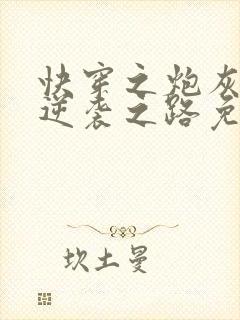 快穿之炮灰
逆袭之路免
坎土曼